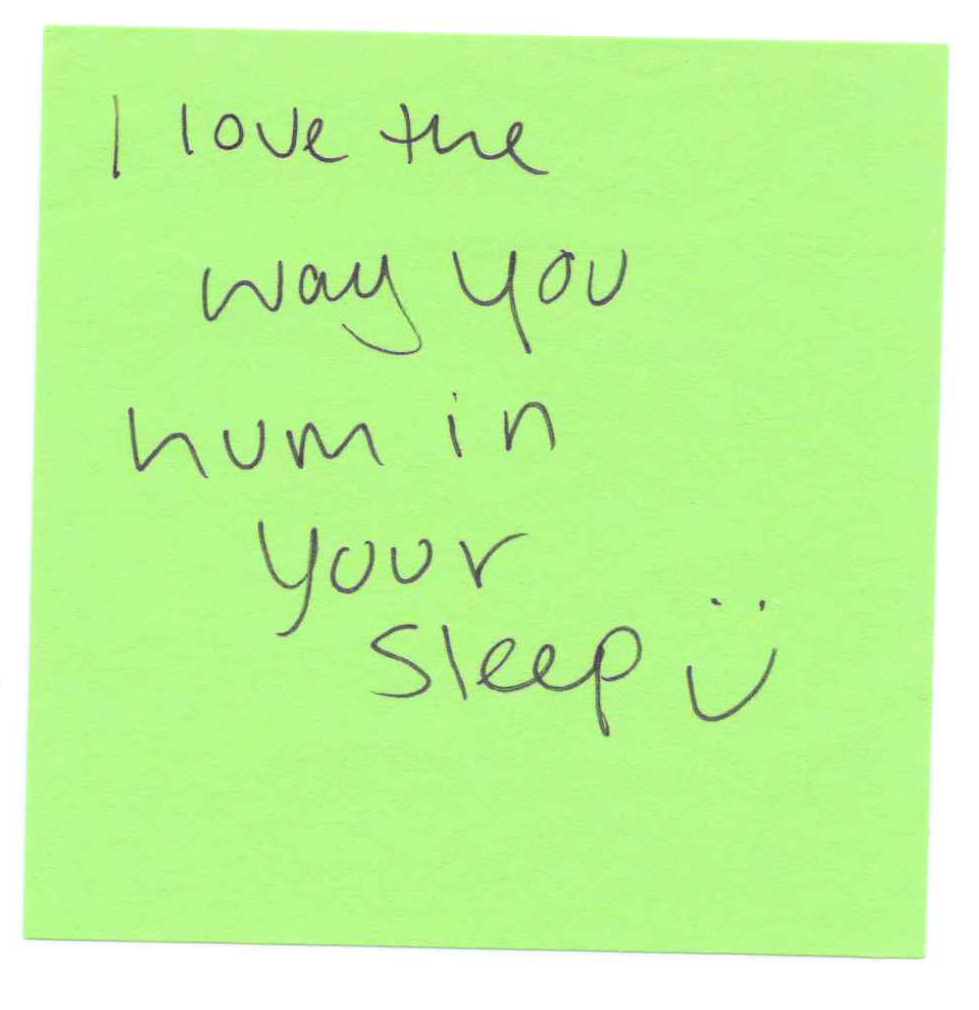 I love the
way you
hum in
your
sleep :)